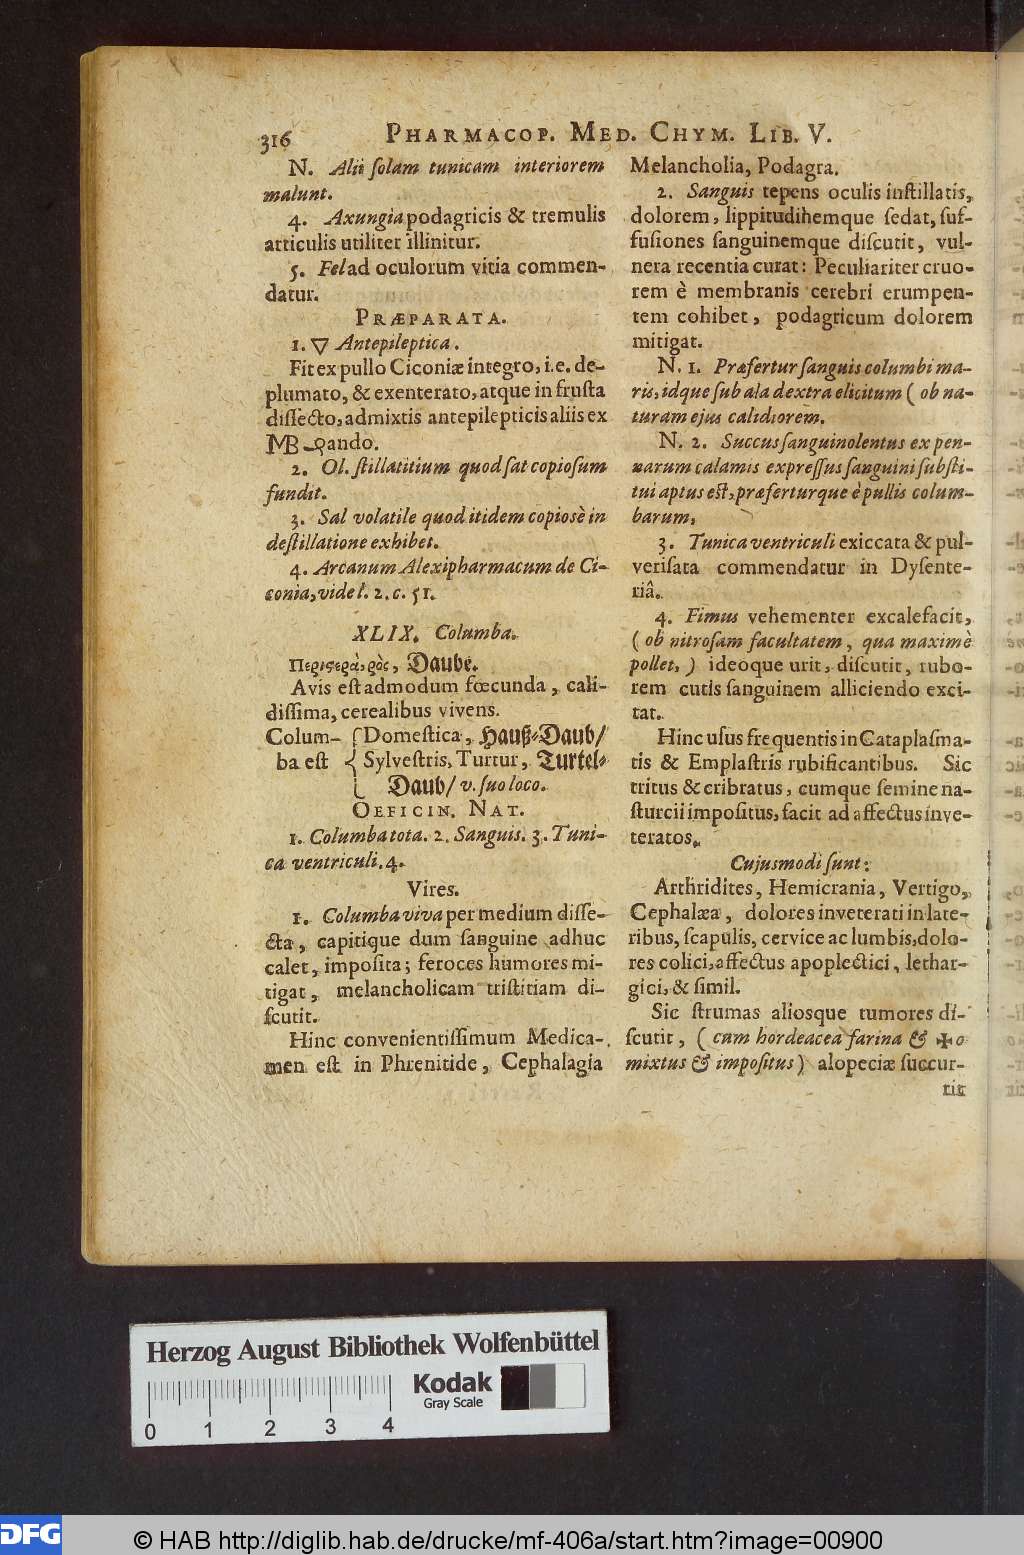 316 PHARMACOP. MED. CHYM. LIB. V.
N. Alii ſolam tunicam interiorem
malunt.
4. Axungia podagricis & tremulis
articulis utiliter illinitur.
5. Fel ad oculorum vitia commen-
datur.
PRÆPARATA.
1. ▽ Antepileptica.
Fit ex pullo Ciconiæ integro, i. e. de-
plumato, & exenterato, atque in fruſta
diſſecto, admixtis antepilepticis aliis ex
MB ando.
2. Ol. ſtillatitium quod ſat copioſum
fundit.
3. Sal volatile quod itidem copiosè in
deſtillatione exhibet.
4. Arcanum Alexipharmacum de Ci-
conia, vide l. 2. c. 51.
XLIX. Columba.
Περιςερὰ, ρὸς, Daube.
Avis eſt admodum fœcunda, cali-
diſſima, cerealibus vivens.
Colum- { Domeſtica, Hauß-Daub/
ba eſt Sylveſtris, Turtur, Turtel-
Daub/ v. ſuo loco.
OFFICIN. NAT.
1. Columba tota. 2. Sanguis. 3. Tuni-
ca ventriculi. 4.
Vires.
1. Columba viva per medium diſſe-
cta, capitique dum ſanguine adhuc
calet, impoſita; feroces humores mi-
tigat, melancholicam triſtitiam di-
ſcutit.
Hinc convenientiſſimum Medica-
men eſt in Phrenitide, Cephalagia
Melancholia, Podagra.
2. Sanguis tepens oculis inſtillatis,
dolorem, lippitudinemque ſedat, ſuf-
fuſiones ſanguinemque diſcutit, vul-
nera recentia curat: Peculiariter cruo-
rem è membranis cerebri erumpen-
tem cohibet, podagricum dolorem
mitigat.
N. 1. Præfertur ſanguis columbi ma-
ris, idque ſub ala dextra elicitum ( ob na-
turam ejus calidiorem.
N. 2. Succus ſanguinolentus ex pen-
narum calamis expreſſus ſanguini ſubſti-
tui aptus eſt, præferturque è pullis colum-
barum,
3. Tunica ventriculi exiccata & pul-
veriſata commendatur in Dyſente-
riâ.
4. Fimus vehementer excalefacit,
( ob nitroſam facultatem, qua maximè
pollet, ) ideoque urit, diſcutit, rubo-
rem cutis ſanguinem alliciendo exci-
tat.
Hinc uſus frequentis in Cataplaſma-
tis & Emplaſtris rubificantibus. Sic
tritus & cribratus, cumque ſemine na-
ſturcii impoſitus, facit ad affectus inve-
teratos.
Cujusmodi ſunt:
Arthridites, Hemicrania, Vertigo,
Cephalæa, dolores inveterati in late-
ribus, ſcapulis, cervice ac lumbis, dolo-
res colici, affectus apoplectici, lethar-
gici, & ſimil.
Sic ſtrumas aliosque tumores di-
ſcutit, ( cum hordeacea farina & ✠o
mixtus & impoſitus ) alopeciæ ſuccur-
rit
Herzog August Bibliothek Wolfenbüttel
Kodak
Gray Scale
0 1 2 3 4
DFG
© HAB http://diglib.hab.de/drucke/mf-406a/start.htm?image=00900